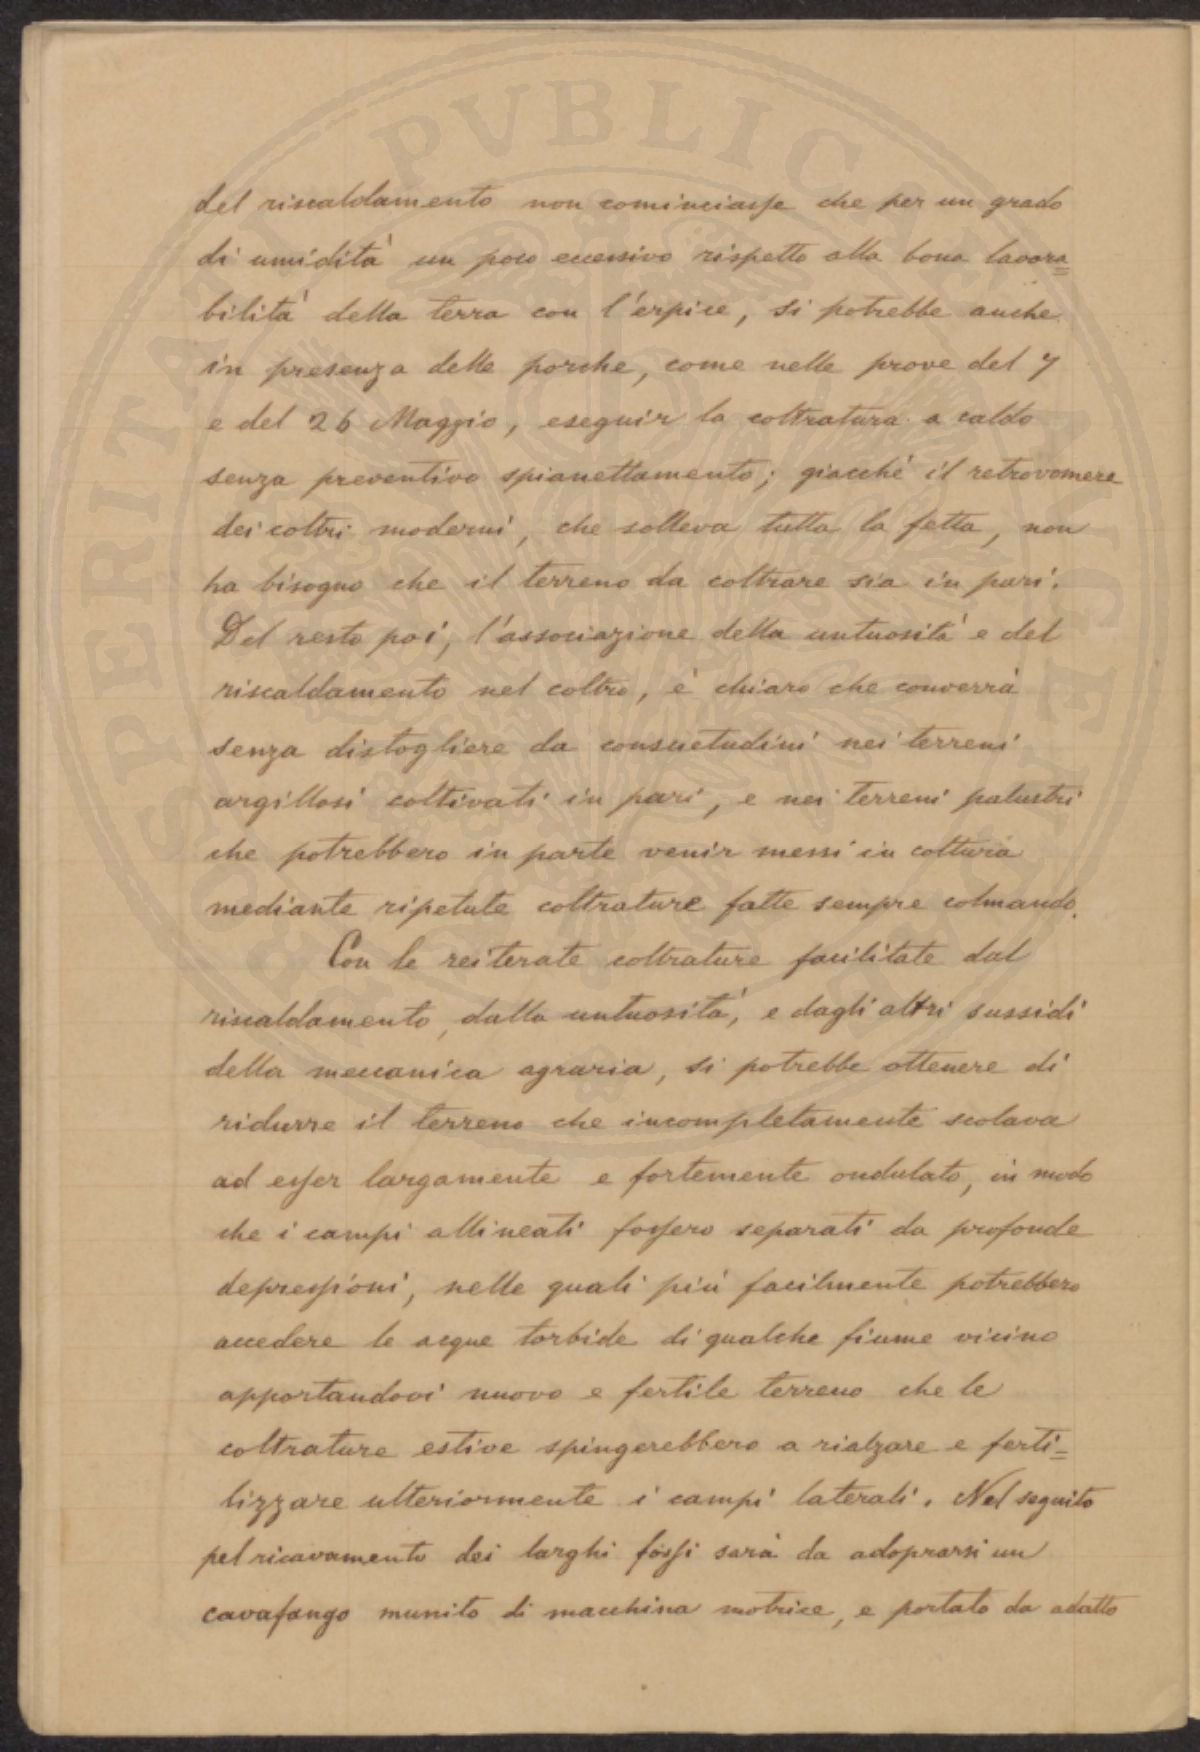 del riscaldamento non cominciasse che per un grado
di umidità un poco eccessivo rispetto alla bona lavora=
bilità della terra con l'erpice, si potrebbe anche
in presenza delle porche, come nelle prove del 7
e del 26 Maggio, eseguir la coltratura a caldo
senza preventivo spianettamento; giacché il retrovomere
dei coltri moderni, che solleva tutta la fetta, non
ha bisogno che il terreno da coltrare sia in pari.
Del resto poi, l'associazione della untuosità e del
riscaldamento nel coltro, è chiaro che converrà
senza distogliere da consuetudini nei terreni
argillosi coltivati in pari, e nei terreni palustri
che potrebbero in parte venir messi in coltura
mediante ripetute coltrature fatte sempre colmando.
Con le reiterate coltrature facilitate dal
riscaldamento, dalla untuosità, e dagli altri sussidi
della meccanica agraria, si potrebbe ottenere di
ridurre il terreno che incompletamente scolava
ad esser largamente e fortemente ondulato, in modo
che i campi allineati fossero separati da profonde
depressioni, nelle quali più facilmente potrebbero
accedere le acque torbide di qualche fiume vicino
apportandovi nuovo e fertile terreno che le
coltrature estive spingerebbero a rialzare e ferti=
lizzare ulteriormente i campi laterali. Nel seguito
pel ricavamento dei larghi fossi sarà da adoprarsi un
cavafango munito di macchina motrice, e portato da adatto